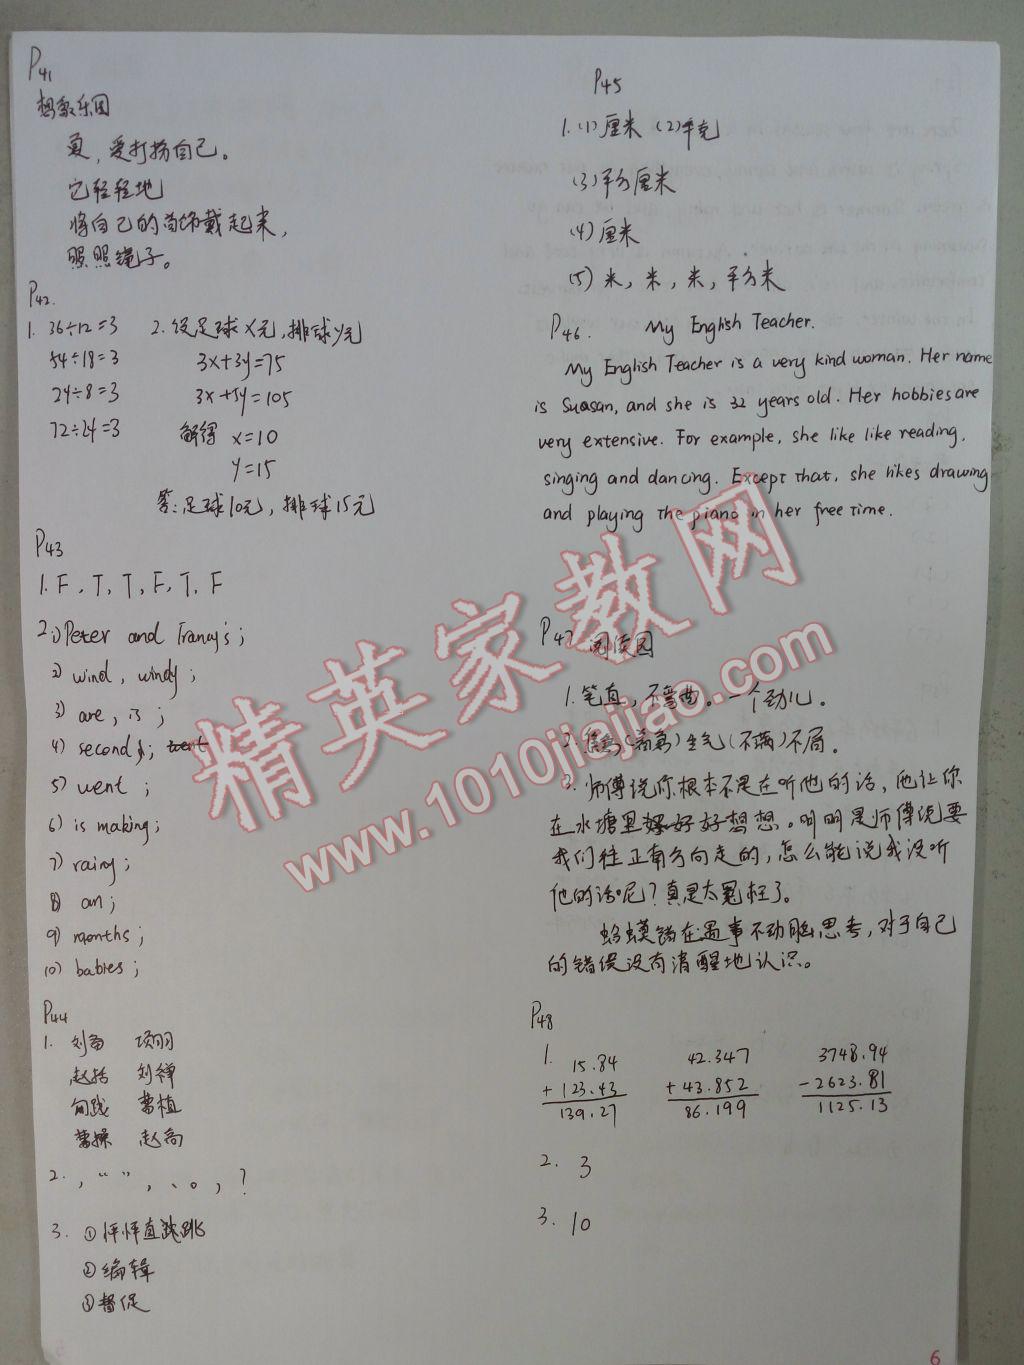 P41
想象乐园
夏，爱打扮自己。
它轻轻地
将自己的首饰戴起来，
照照镜子。
P42.
1. 36÷12=3
54÷18=3
24÷8=3
72÷24=3
2. 设足球X元，排球y元
3x+3y=75
3x+5y=105
解得 x=10
y=15
答：足球10元，排球15元
P43
1. F，T，T，F，T，F
2. 1) Peter and
2) wind, windy;
3) are, is;
4) second;
5) went;
6) is making;
7) rainy;
8) an;
9) months;
10) babies;
P44
1. 刘备 项羽
赵括 刘禅
勾践 曹植
曹操 赵高
2. ，“ ”，、。，？
3. ①怦怦直跳
②编辑
③督促
P45
1. (1)厘米 (2)千克
(3)平方厘米
(4)厘米
(5)米，米，米，平方米
P46. My English Teacher.
My English Teacher is a very kind woman. Her name
is Suasan, and she is 32 years old. Her hobbies are
very extensive. For example, she like like reading,
singing and dancing. Except that, she likes drawing
and playing the piano in her free time.
P47 阅读园
1. 笔直，不弯曲。一个劲儿。
2. 生气(不满)不屑。
3. 师傅说你根本不是在听他的话，他让你
在水塘里好好想想。明明是师傅说要
我们往正南方向走的，怎么能说我没听
他的话呢？真是太冤枉了。
蛤蟆错在遇事不动脑思考，对于自己
的错误没有清醒地认识。
P48
1. 15.84
+123.43
139.27
42.347
+43.852
86.199
3748.94
-2623.81
1125.13
2. 3
3. 10
精英家教网
www.1010jiajiao.com
6